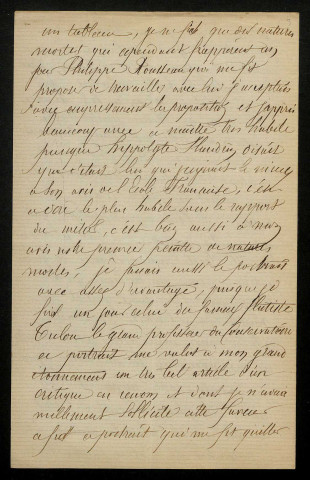 un tableau, je ne fis que des natures
mortes qui cependant frappèrent un
jour Philippe Rousseau qui me fit
propose de travailler avec lui j'acceptais
avec empressement la proposition et j'appris
beaucoup avec ce maitre très habile
puisque hippolyte Flandrin disait
que c'était lui qui peignait le mieux
à son avis de l'école Française, c'est
a dire le plus habile sous le rapport
du métier, c'est bien aussi à mon
avis notre premier peintre de natures
mortes, je faisais aussi le portrait
avec assez d'avantage, puisque je
fis un jour celui du fameux flutiste
Tulou le grand professeur du Conservatoire
ce portrait me valut à mon grand
étonnement un très bel article d'un
critique en renom et dont je n'avais
nullement sollicité cette faveur
ce fut ce portrait qui me fit quitter